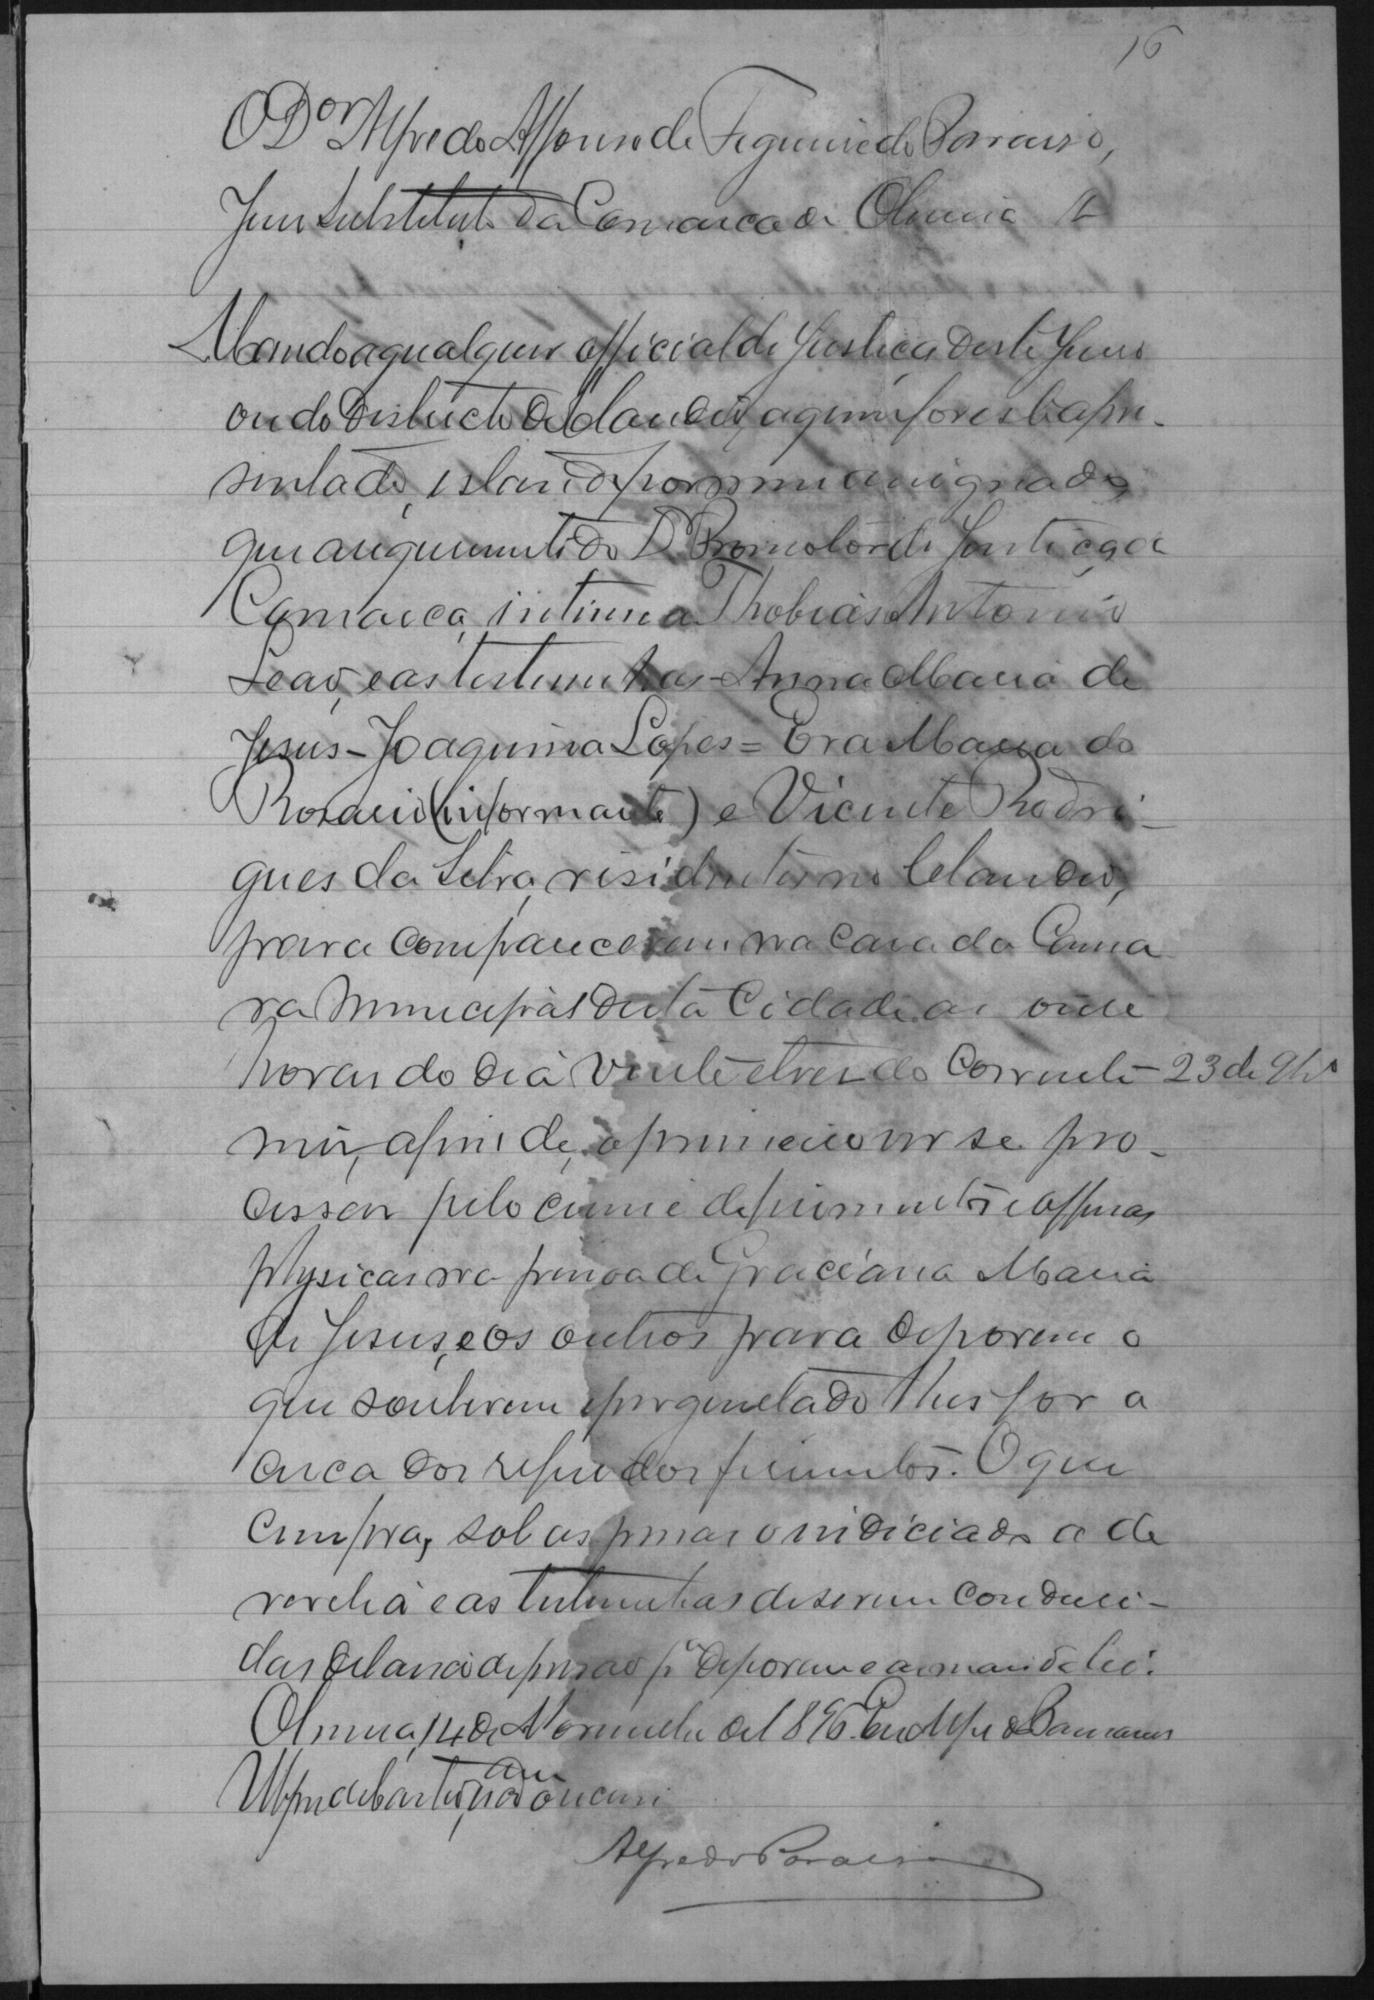 16
O Dor Alfredo Affonso de Figueiredo Paraiso,
Juiz Substituto da Comarca de Oliveira &
Mando a qualquer official de Justiça deste Juizo
ou do Districto do Claudio, a quem for este apre-
sentado, estando por mim assignado,
que a requerimento do Dr Promotor de Justiça da
Comarca, intime a Thobias Antonio
Leão, e as testemunhas - Anna Maria de
Jesus - Joaquina Lopes = Eva Maria do
Rosario (informante) e Vicente Rodri-
gues da Silva, residentes no Claudio,
para comparecerem na casa da Cama
ra Municipal desta Cidade as onze
horas do dia vinte e tres do corrente - 23 de 9bro
mez, afim de, o primeiro ver se pro-
cessar pelo crime de ferimentos e offensas
physicas na pessoa de Graciana Maria
de Jesus, e os outros para deporem o
que souberem e perguntado lhes for a
cerca dos referidos ferimentos. O que
cumpra, sob as penas o indiciado a de
revelia e as testemunhas de serem condusi-
das debaixo de prisão pa deporem e as mais da lei.
Oliveira, 14 de Novembro de 1896. Eu Alfredo
Alfredo Paraiso